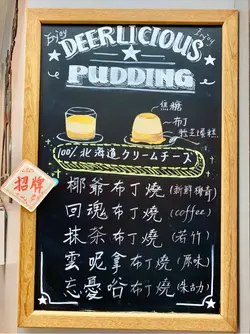 Enjoy Enjoy
DEERLICIOUS
PUDDING
焦糖
布丁
100% 北海道 クリームチーズ
招牌
椰爺布丁燒 (新鮮椰青)
回魂布丁燒 (coffee)
抹茶布丁燒 (若竹)
雲呢拿布丁燒 (原味)
忘憂谷布丁燒 (朱古力)